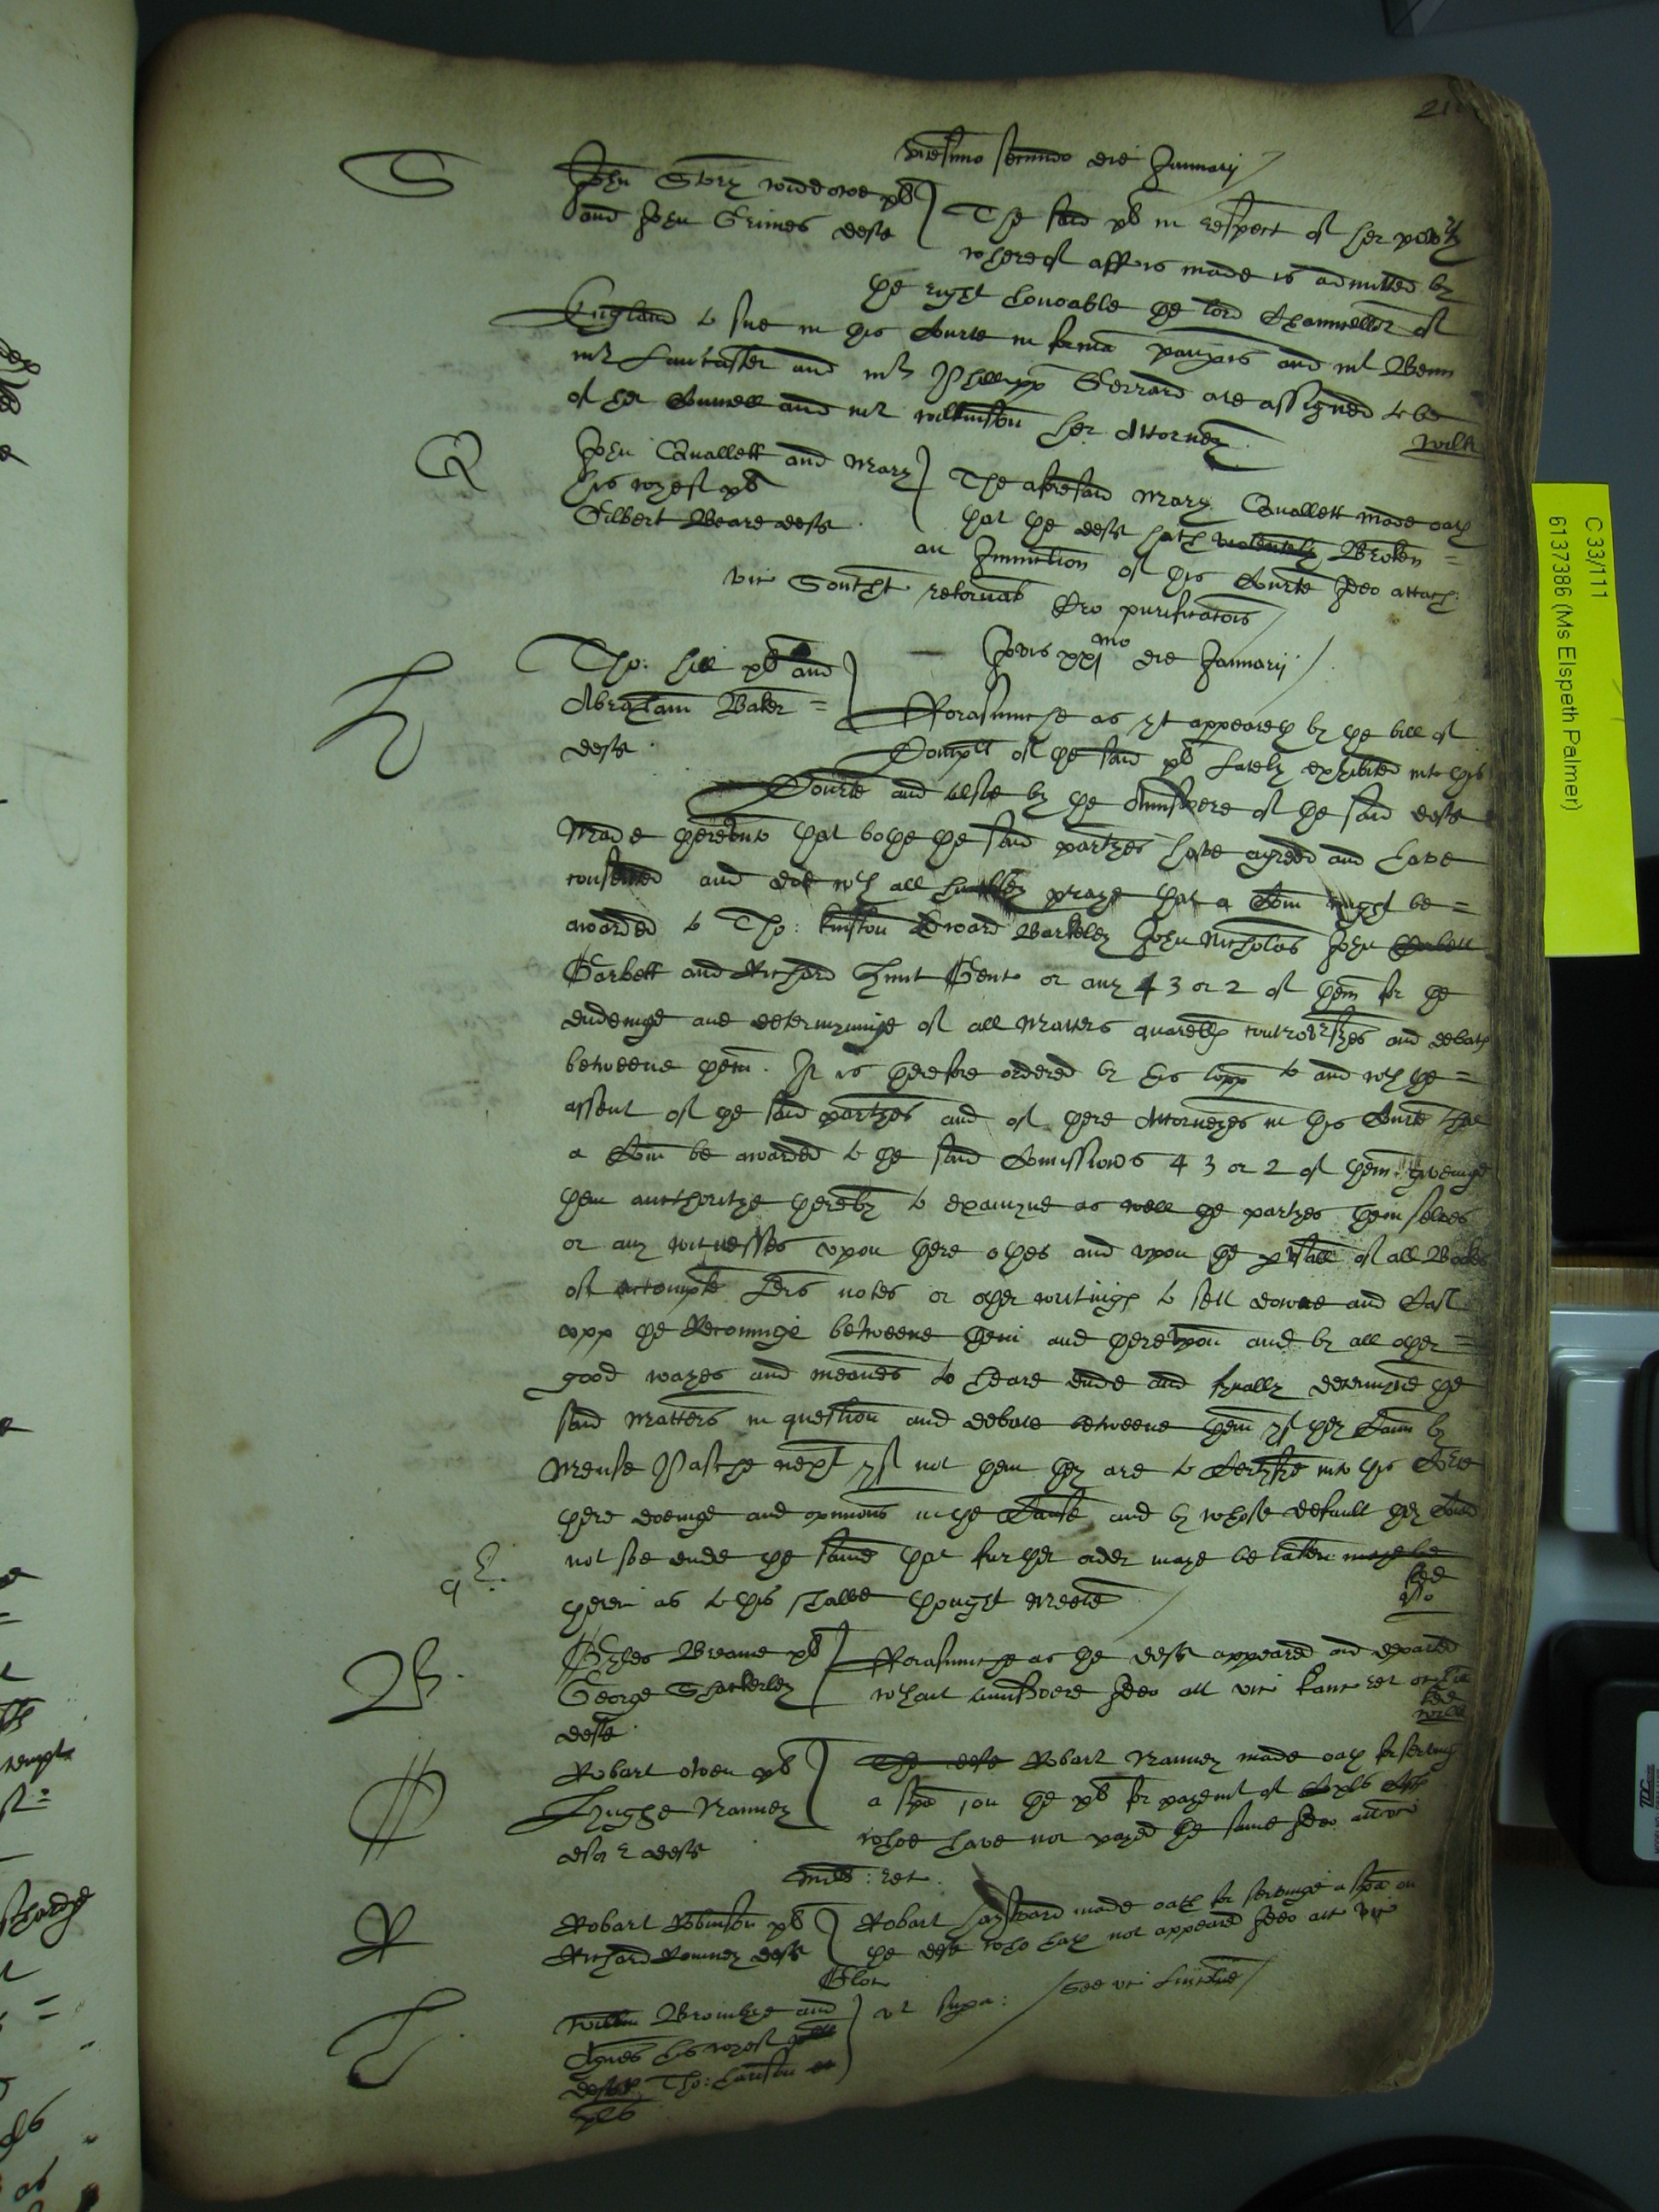 21
vicesimo secundo die Januarij
S
John Story widdowe pl
and John Grimes deft
The said pl in respect of her povty
whereof affid is made is admitted by
the right honorable the lord Chauncellor of
England to sue in this Courte in forma paupis and mr Benn
mr Lancaster and mr Phillipp Gerrard are assigned to be
of her Counsell and mr wilkinson her Attorney
Q
John Quallett and Mary
his wyef pl
Gilbert Beare deft
The aforesaid Mary Quallett made oath
that the deft hath violently Broken =
an Iniunction of this Courte Ideo attach
vic Southt retornab Cro purificatois
Jovis xxjmo die Januarij
H
Tho: Hill pl and
Abraham Baker =
deft
Forasmuche as yt appeareth by the bill of
Complt of the said pl lately exhibited into this
Courte and alsoe by the Aunswere of the said deft
Made therevnto that bothe the said partyes have agreed and have
consented and doe wth all humbly praye that a Com might be =
awarded to Tho: Edward Barkeley John Nicholas John
Garbett and Richard Hunt Gent or any 4 3 or 2 of them for the
endeinge and determyninge of all Matters quarells controvsyes and debates
betweene them. It is therefore ordered by his lopp to and wth the =
assent of the said partyes and of there Attorneyes in this Courte that
a Com be awarded to the said Comissions 4 3 or 2 of them geveinge
them aucthoritye thereby to examyne as well the partyes themselves
or any wittnesses vpon there othes and vpon the pvsall of all Bookes
of accompte lres notes or other writings to sett downe and Cast
vpp the Reconinge betweene them and therevpon and by all other =
good wayes and meanes to heare ende and fynally determyne the
said Matters in question and debate betweene them yf they Cann by
Mense Pasche next yf not then they are to Certyfie into this Corte
there doeinge and opinions in the Cause and by whose default they Could
not soe ende the same that further order maye be taken maye be
therein as to this shalbe thought Meete
B
Gyles Breame pl
George Shackerley
deft
Forasmuche as the deft appeared and departed
wthout aunswere Ideo att vic Kanc ret
Robart Owen pl
Hughe Manney
deft
The deft Robart Manney made oath for serving
a spa on the pl for payemt of
whoe have not payed the same Ideo att vic
ret.
R
Robart Robinson pl
Richard Romney deft
Robart hayward made oath for servinge a spa on
the deft who hath not appeared Ideo att vic
Glouc
Willm Brombye and
Agnes his wyef
deft Tho:
vt supra: